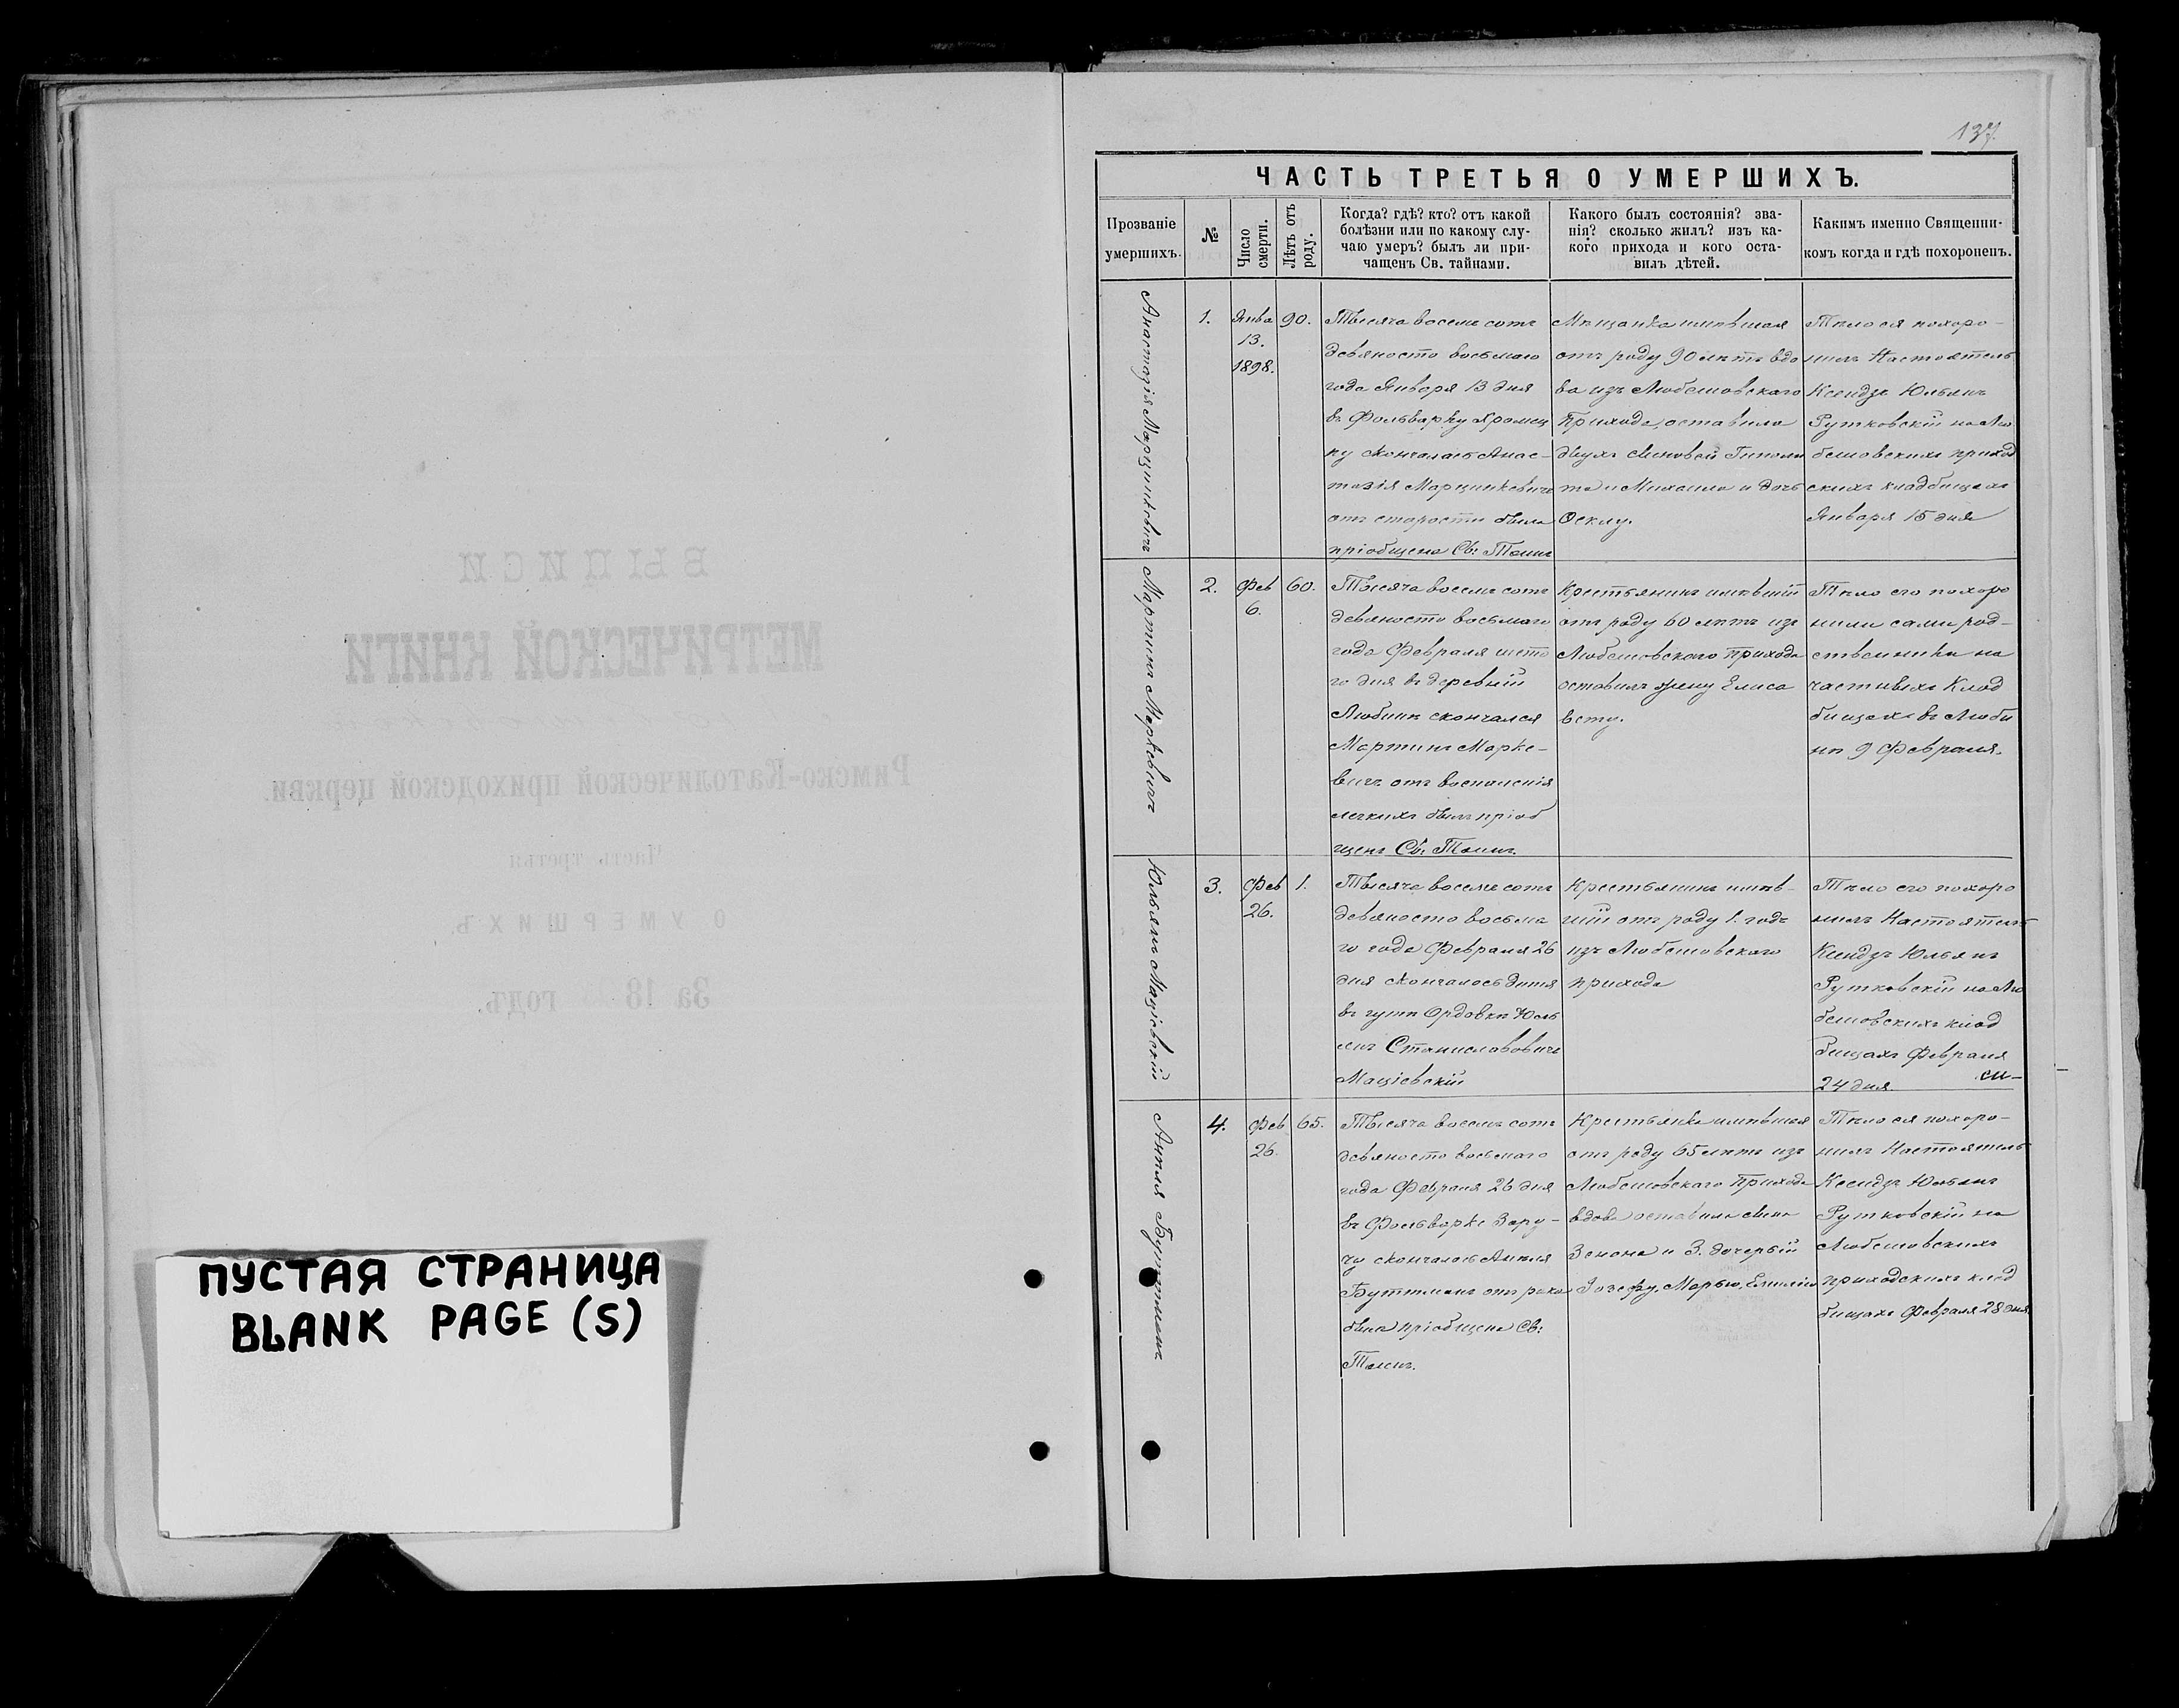 137.
ЧАСТЬ ТРЕТЬЯ О УМЕРШИХЪ.
Прозваніе
умершихъ.
№
Число
смерти.
Лѣтъ отъ
роду.
Когда? гдѣ? кто? отъ какой
болѣзни или по какому слу-
чаю умеръ? былъ ли при-
чащенъ Св. тайнами.
Какого былъ состоянія? зва-
нія? сколько жилъ? изъ ка-
кого прихода и кого оста-
вилъ дѣтей.
Какимъ именно Священни-
комъ когда и гдѣ похороненъ.
Анастазія Марцинкевичъ
1.
Янва
13.
1898.
90.
Тысяча восемь сотъ
девяносто восьмаго
года Января 13 дня
въ Фольварку
ку скончалась Анас-
тазія Марцинкевичъ
отъ старости была
пріобщена Св: Таинъ
Мѣщанка имѣвшая
отъ роду 90 лѣтъ вдо
ва изъ Любешовскаго
Прихода, оставила
двухъ Сыновей Гиполи
та и Михаила и дочь
Ѳеклу.
Тѣло ея похоро-
нилъ Настоятель
Ксендзъ Юльянъ
Рутковскій на Лю
бешовскихъ приход
скихъ кладбищахъ
Января 15 дня
Мартинъ Маркевичъ
2.
Фев
6.
60.
Тысяча восемь сотъ
девяносто восьмаго
года Февраля шесто
го дня въ деревнѣ
Любинѣ скончался
Мартинъ Марке-
вичъ отъ воспаленія
легкихъ былъ пріоб
щенъ Св: Таинъ.
Крестьянинъ имѣвшій
отъ роду 60 лѣтъ изъ
Любешовскаго Прихода
оставилъ жену Елиса
вету.
Тѣло его похоро
нили сами род-
ственники на
частныхъ Клад
бищахъ въ Люби
нѣ 9 Февраля.
Юльянъ Маціевскій
3.
Фев
26.
1.
Тысяча восемь сотъ
девяносто восьма
го года Февраля 26
дня скончалось дитя
въ гутѣ Ордовкѣ Юль
янъ Станиславовичъ
Маціевскій
Крестьянинъ имѣв-
шій отъ роду 1. годъ
изъ Любешовскаго
прихода
Тѣло его похоро
нилъ Настоятель
Ксендзъ Юльянъ
Рутковскій на Лю
бешовскихъ клад
бищахъ Февраля
24 дня.
Анѣля Буттманъ
4.
Фев
26.
65.
Тысяча восемь сотъ
девяносто восьмаго
года Февраля 26 дня
въ Фольварке Зару-
чу скончалась Анѣля
Буттманъ отъ рака
была пріобщена Св:
Таинъ.
Крестьянка имѣвшая
отъ роду 65 лѣтъ изъ
Любешовскаго Прихода
вдова оставила сына
Зенона и 3. дочерьій
Іозефу, Марью, Емилію
Тѣло ея похоро-
нилъ Настоятель
Ксендзъ Юльянъ
Рутковскій на
Любешовскихъ
приходскихъ клад
бищахъ Февраля 28 дня.
ВЫПИСИ
МЕТРИЧЕСКОЙ КНИГИ
Римско-Католической приходской церкви.
Часть третья
О УМЕРШИХЪ.
За 18 годъ.
ПУСТАЯ СТРАНИЦА
BLANK PAGE (S)